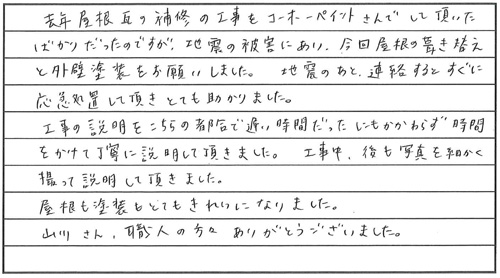 去年屋根瓦の補修の工事をコーホーペイントさんでして頂いた
ばかりだったのですが、地震の被害にあい、今回屋根の葺き替え
と外壁塗装をお願いしました。 地震のあと、連絡するとすぐに
応急処置して頂きとても助かりました。
工事の説明をこちらの都合で遅い時間だったにもかかわらず時間
をかけて丁寧に説明して頂きました。 工事中、後も写真を細かく
撮って説明して頂きました。
屋根も塗装もとてもきれいになりました。
山川さん、職人の方々ありがとうございました。